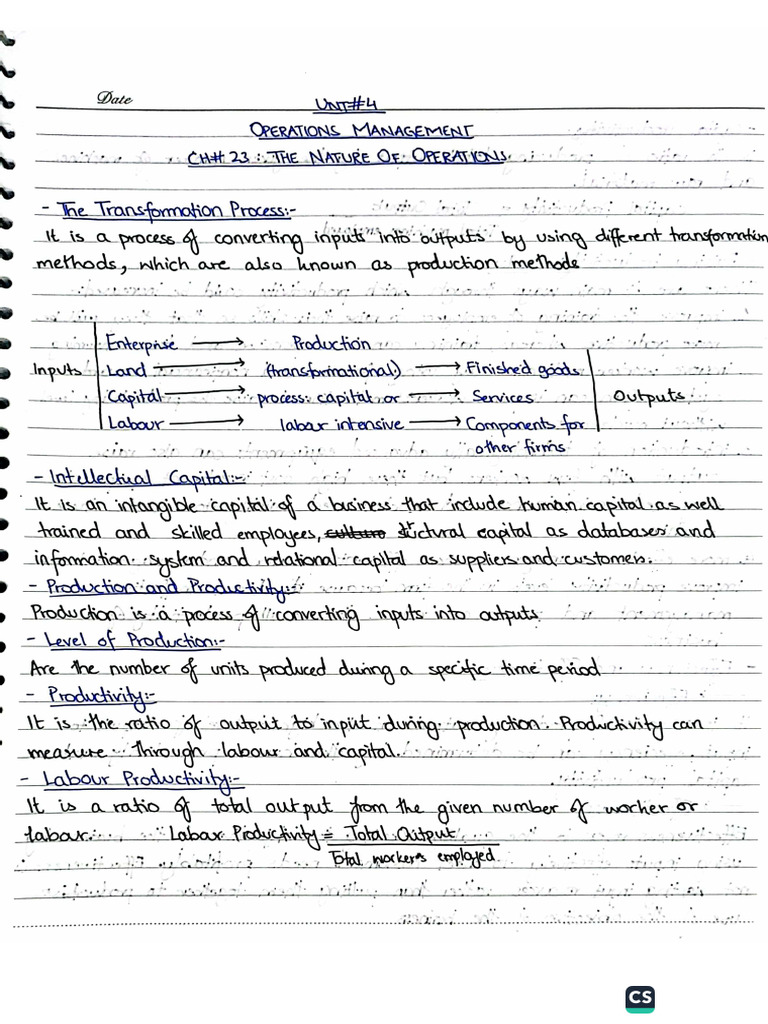 Date
UNIT#4
OPERATIONS MANAGEMENT
CH# 23 : THE NATURE OF OPERATIONS.
- The Transformation Process:-
It is a process of converting inputs into outputs by using different transformation
methods, which are also known as production methods
Enterprise → Production
Inputs Land → (transformational) → Finished goods
Capital → process: capital or → Services Outputs
Labour → labour intensive → Components for
other firms
- Intellectual Capital:-
It is an intangible capital of a business that include human capital as well
trained and skilled employees, culture structural capital as databases and
information system and relational capital as suppliers and customers.
- Production and Productivity:-
Production is a process of converting inputs into outputs
- Level of Production:-
Are the number of units produced during a specific time period
- Productivity:-
It is the ratio of output to input during production. Productivity can
measure through labour and capital.
- Labour Productivity:-
It is a ratio of total output from the given number of worker or
labour. Labour Productivity = Total Output
Total workers employed
CS